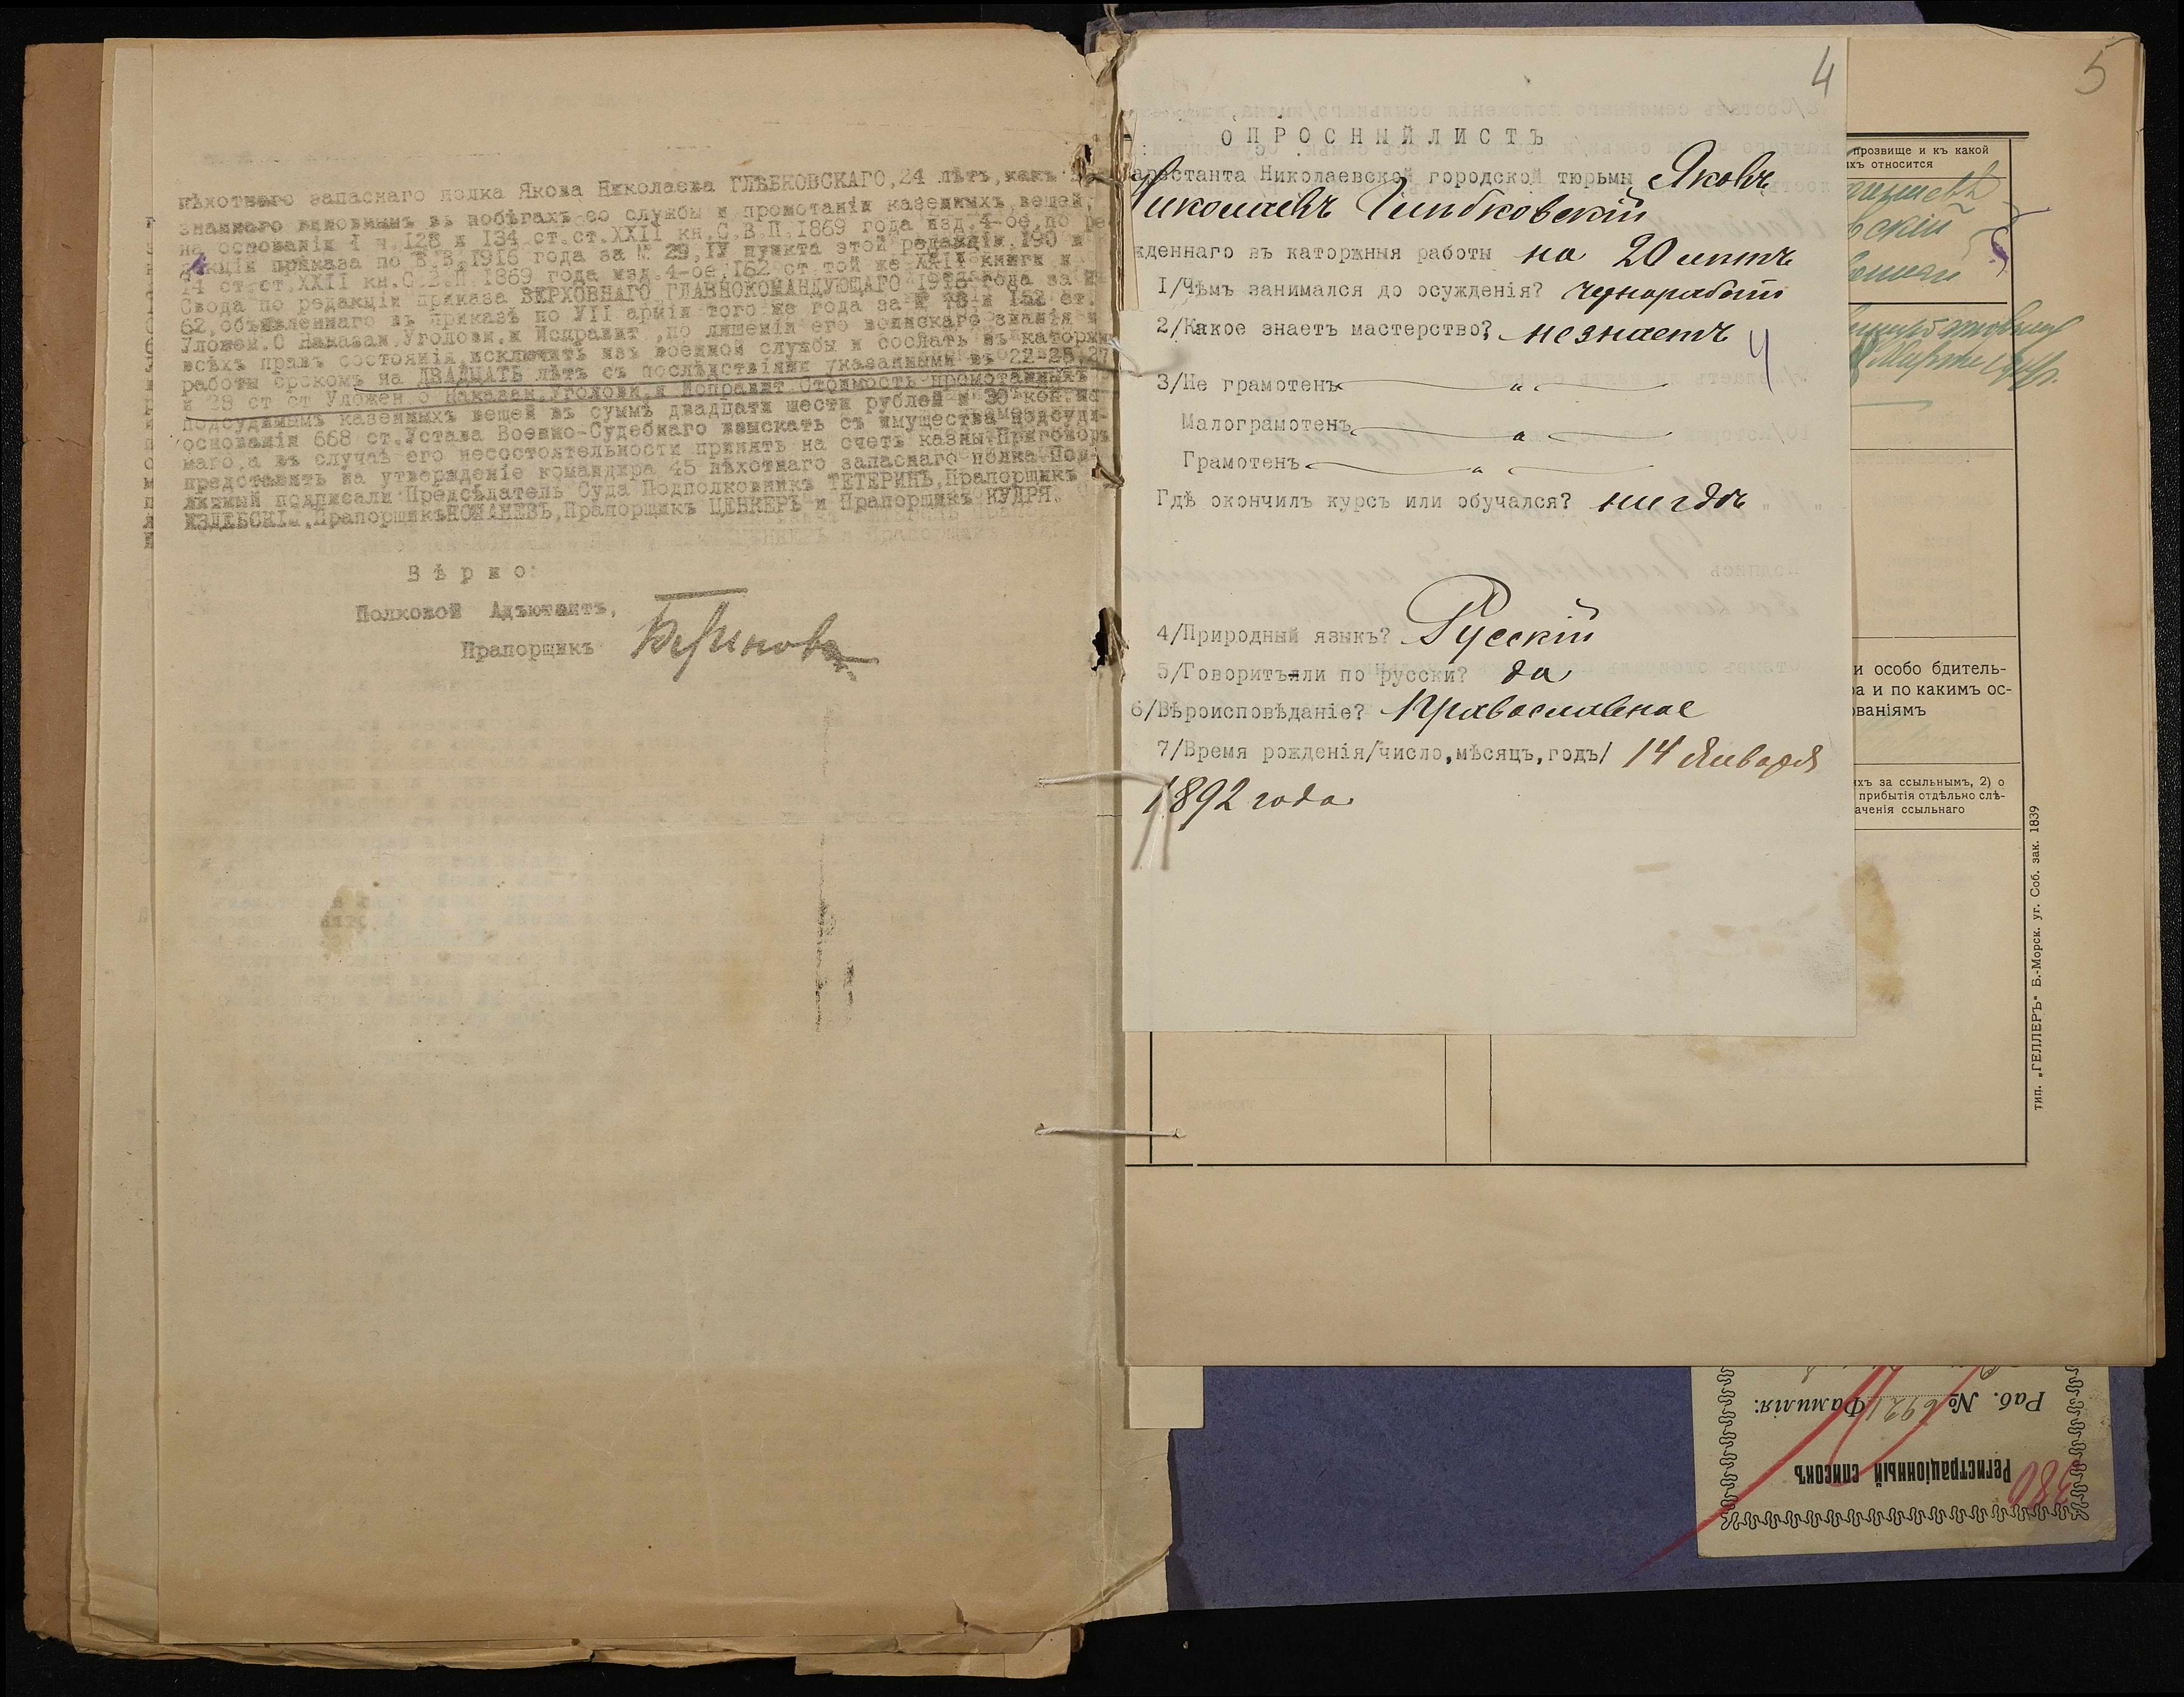 пѣхотнаго запаснаго полка Якова Николаева ГЛѢБКОВСКАГО,24 лѣтъ,какъ
знаннаго виновнымъ въ побѣгахъ со службы и промотаніи казенныхъ вещей,
на основаніи 1 ч.128 и 134 ст.ст.XXII кн.С.В.П.1869 года изд.4-ое,по ре
дакціи приказа по В.В.1916 года за № 29,IV пункта этой редакціи,190 и
14 ст.ст.XXII кн.С.В.П.1869 года изд.4-ое,162 ст.той же XXII книги и
Свода по редакціи приказа ВЕРХОВНАГО ГЛАВНОКОМАНДУЮЩАГО года за №
62,объявленнаго въ приказѣ по VII арміи того же года за № и 152 ст.
Уложен.О Наказан.Уголовн.и Исправит.,по лишеніи его воинскаго званія и
всѣхъ правъ состоянія,исключить изъ военной службы и сослать въ каторжн
работы срокомъ на ДВАДЦАТЬ лѣтъ съ послѣдствіями указанными въ 22-25,27
и 28 ст ст Уложен.о Наказан.Уголовн.и Исправит.Стоимость промотанныхъ
подсудимымъ казенныхъ вещей въ суммѣ двадцати шести рублей и 30 коп.на
основаніи 668 ст.Устава Военно-Судебнаго взыскать съ имущества подсуди-
маго,а въ случаѣ его несостоятельности принять на счетъ казны.Приговоръ
представить на утвержденіе командира 45 пѣхотнаго запаснаго полка.Под-
линный подписали:Предсѣдатель Суда Подполковникъ ТЕТЕРИНЪ,Прапорщикъ
ИЗДЕБСКІЙ,Прапорщикъ Прапорщикъ ЦЕНКЕРЪ и Прапорщикъ КУДРЯ.
Вѣрно:
Полковой Адъютантъ,
Прапорщикъ
4
ОПРОСНЫЙ ЛИСТЪ
арестанта Николаевской городской тюрьмы Яковъ
Николаевъ Глѣбковскій
жденнаго въ каторжныя работы на 20 лѣтъ
1/Чѣмъ занимался до осужденія? чернорабочій
2/Какое знаетъ мастерство? не знаетъ
3/Не грамотенъ "
Малограмотенъ "
Грамотенъ "
Гдѣ окончилъ курсъ или обучался? нигдѣ
4/Природный языкъ? Русскій
5/Говоритъ-ли по русски? да
6/Вѣроисповѣданіе? Православное
7/Время рожденія/число,мѣсяцъ,годъ/ 14 Января
1892 года
5
прозвище и къ какой
ихъ относится
вскій
и особо бдитель-
ра и по какимъ ос-
ованіямъ
ихъ за ссыльнымъ, 2) о
прибытія отдѣльно слѣ-
аченія ссыльнаго
тип. „ГЕЛЛЕРЪ“ Б.-Морск. уг. Соб. зак. 1839
380
Регистраціонный списокъ
Раб. № 6921 Фамилія: